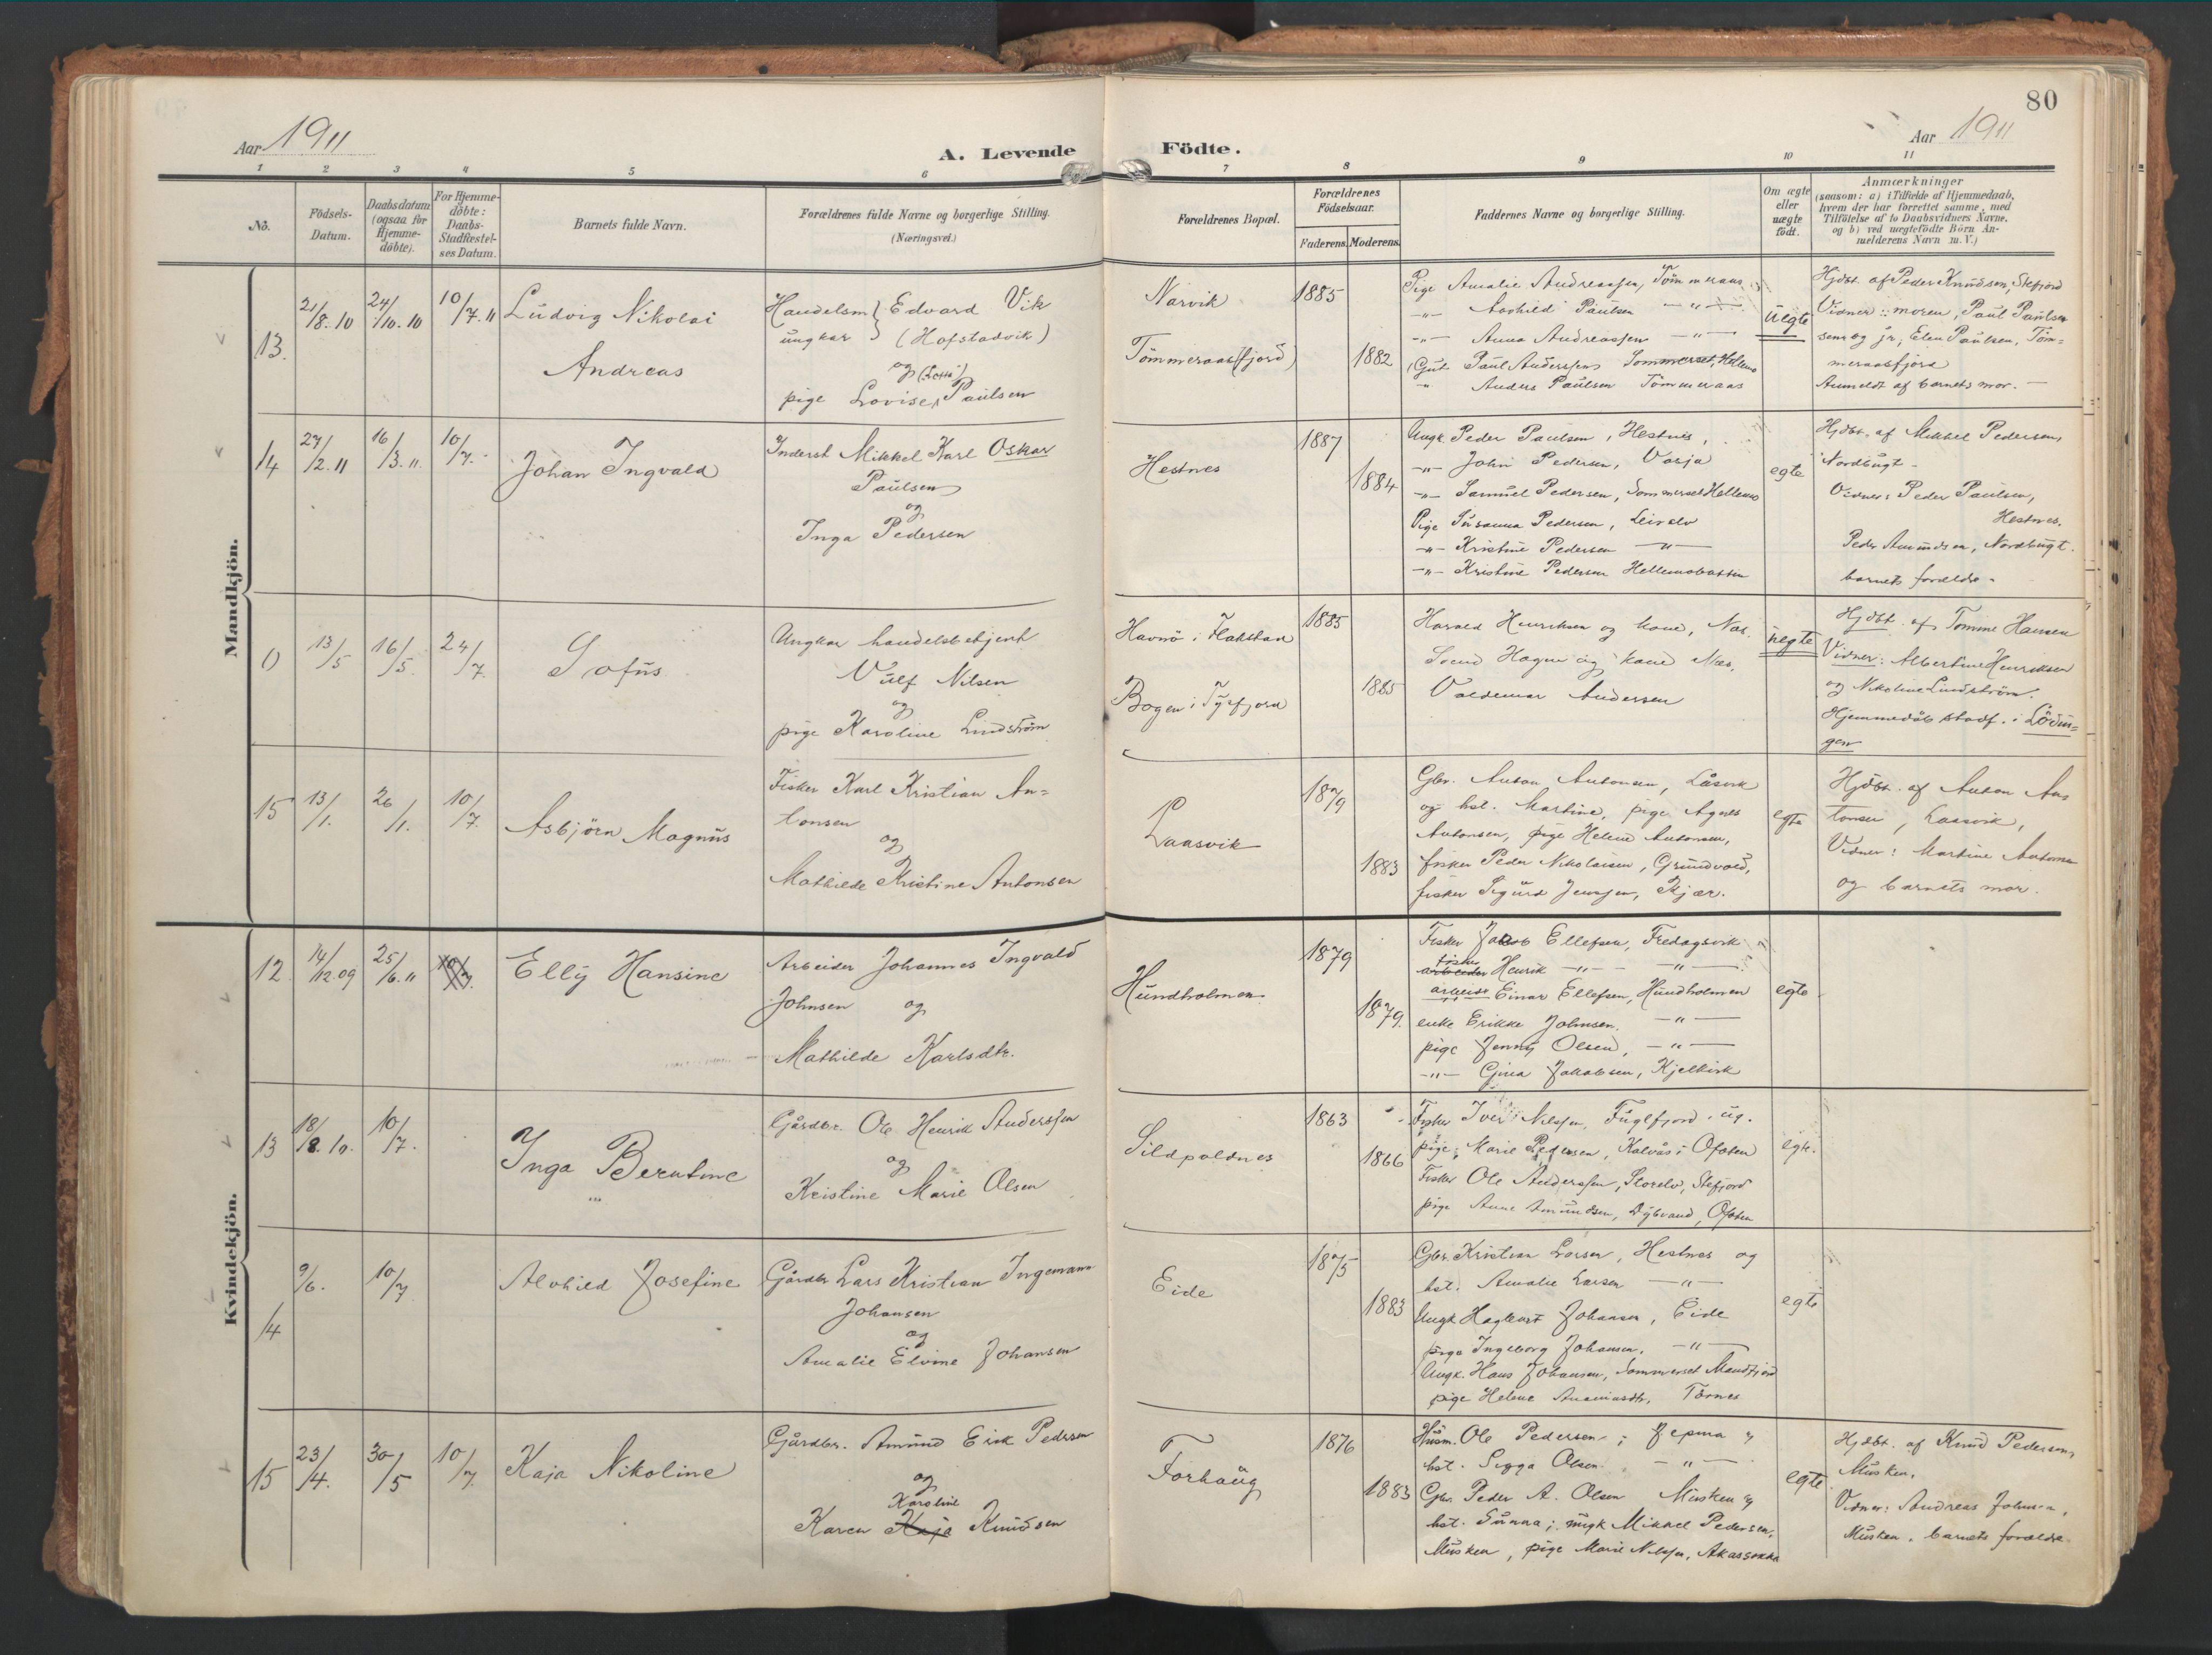 80
Aar 1911
A. Levende Födte.
Aar 1911
1 2 3 4 5 6 7 8 9 10 11
No.
Födsels-Datum.
Daabsdatum (ogsaa for Hjemme-döbte).
For Hjemme-döbte: Daabs-Stadfæstel-ses Datum.
Barnets fulde Navn.
Forældrenes fulde Navne og borgerlige Stilling.
(Næringsvei.)
Forældrenes Bopæl.
Forældrenes Födselsaar.
Faderens. Moderens.
Faddernes Navne og borgerlige Stilling.
Om ægte eller uægte födt.
Anmærkninger
(saasom: a) i Tilfælde af Hjemmedaab,
hvem der har forrettet samme, med
Tilföielse af to Daabsvidners Navne.
og b) ved uægtefödte Börn An-
melderens Navn m. V.)
Mandkjön.
13. 21/8.10 24/10.10 10/7.11
Ludvig Nikolai
Andreas
Handelsm } Edvard Vik
ungkar } (Hofstadvik)
og (Lotti)
pige Lovise Paulsen
Narvik
Tömmeraas(fjord)
1885
1882
Pige Amalie Andreassen, Tömmeraas
-"- Aashild Paulsen -"-
-"- Anna Andreassen -"-
Gut Paul Anderssen Sommerset, Hellemo
" Anders Paulsen Tömmeraas
uegte
Hjdbt. af Peder Knudsen, Stefjord
Vidner: moren, Paul Paulsen
sen. og jr, Elen Paulsen, Töm-
meraasfjord
Anmeldt af barnets mor. -
14 27/2.11 16/3.11 10/7.
Johan Ingvald
Inderst Mikkel Karl Oskar
Paulsen
og
Inga Pedersen
Hestnes
1887
1884
Ungk. Peder Paulsen, Hestnes,
-"- John Pedersen, Vasja
-"- Samuel Pedersen, Sommerset Hellemo
Pige Susanna Pedersen, Leirelv
-"- Kristine Pedersen -"-
-"- Kristine Pedersen Hellemobotten
egte
Hjdbt. af Mikkel Pedersen,
Nordbugt -
Vidner: Peder Paulsen,
Hestnes.
Peder Amundsen, Nordbugt.
barnets forældre -
0 13/5 16/5. 24/7.
Sofus
Ungkar handelsbetjent
Vulf Nilsen
og
pige Karoline Lindström
Havnö i Flakstad
Bogen i Tysfjord
1885
1885
Harald Henriksen og kone, Næs.
Svend Hagen og kone Næs.
Valdemar Andersen
uegte
Hjdbt. af Tomine Hansen
Vidner: Albertine Henriksen
og Nikoline Lindström.
Hjemmedåb stadf. i Lödin=
gen
15 13/1. 26/1. 10/7.
Asbjörn Magnus
Fisker Karl Kristian An=
tonsen
og
Mathilde Kristine Antonsen
Laasvik
1879
1883
Gbr. Anton Antonsen, Låsvik
og hst. Martine, pige Agnes
Antonsen, pige Helene Antonsen,
fisker Peder Nikolaisen, Grundvold,
fisker Sigurd Jensen, Skjær.
egte
Hjdbt. af Anton An
tonsen, Laasvik,
Vidner: Martine Antonsen
og barnets mor.
Kvindekjön.
12. 14/12.09 25/6.11 10/7.
Elly Hansine
Arbeider Johannes Ingvald
Johnsen og
Mathilde Karlsdtr.
Hundholmen
1879
1879.
Fisker Jakob Ellefsen, Fredagsvik
fisker
arbeider Henrik -"- -"-
arbeider Einar Ellefsen, Hundholmen
enke Erikke Johnsen. -"-
pige Jenny Olsen, -"-
-"- Gina Jakobsen, Kjelkvik
egte
13 18/8.10. 10/7.
Inga Berntine
Gårdbr. Ole Henrik Anderssen
og
Kristine Marie Olsen
Sildpoldnes
1863
1866
Fisker Iver Nilssen, Fuglfjord, ug.
pige: Marie Pedersen, Kalvås i Ofoten
Fisker Ole Anderssen, Storelv, Stefjord
pige Anne Amundsen, Dybvand, Ofoten
egte.
14 9/6. 10/7
Alvhild Josefine
Gårdbr Lars Kristian Ingemann
Johansen
og
Amalie Elvine Johansen
Eide
1875
1883
Gbr. Kristian Larsen, Hestnes og
hst. Amalie Larsen -"-
Ungk Hagbart Johansen, Eide
pige Ingeborg Johansen. -"-
Ungk. Hans Johansen, Sommerset Mandfjord
pige Helene Ananiasdtr, Tårnes
egte
15 23/4. 30/5 10/7.
Kaja Nikoline
Gårdbr. Amund Erik Pedersen
og
Karoline
Karen Kaja Knudsen
Forhaug
1876
1883
Husm. Ole Pedersen, Jepma og
hst. Sigga Olsen -"-
Gbr. Peder A. Olsen Musken og
hst. Sunna; ungk Mikkel Pedersen,
Musken, pige Marie Nilssen, Akassokka
egte
Hjdbt. af Knud Pedersen,
Musken.
Vidner: Andreas Johnsen,
Musken. barnets forældre.